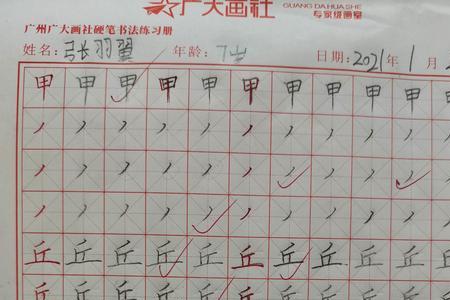 广大画社
GUANG DA HUA SHE
专家级画室
广州广大画社硬笔书法练习册
姓名：张羽翼 年龄：7岁 日期：2021年1月2
甲甲甲甲甲甲甲甲甲甲
丿丿丿丿丿丿丿丿丿丿
丿丿丿丿丿丿丿丿丿丿
丿丿丿丿丿丿丿丿丿丿
丘丘丘丘丘丘丘丘丘丘